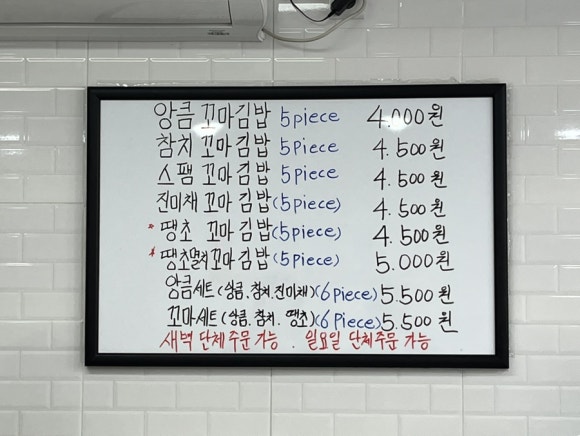 앙큼 꼬마김밥 5piece 4.000원
참치 꼬마김밥 5piece 4.500원
스팸 꼬마김밥 5piece 4.500원
진미채 꼬마김밥 (5piece) 4.500원
* 땡초 꼬마김밥 (5piece) 4.500원
* 땡초멸치 꼬마김밥 (5piece) 5.000원
앙큼세트 (상큼.참치.진미채) (6piece) 5.500원
꼬마세트 (상큼.참치.땡초) (6piece) 5.500원
새벽 단체주문 가능 . 일요일 단체주문 가능